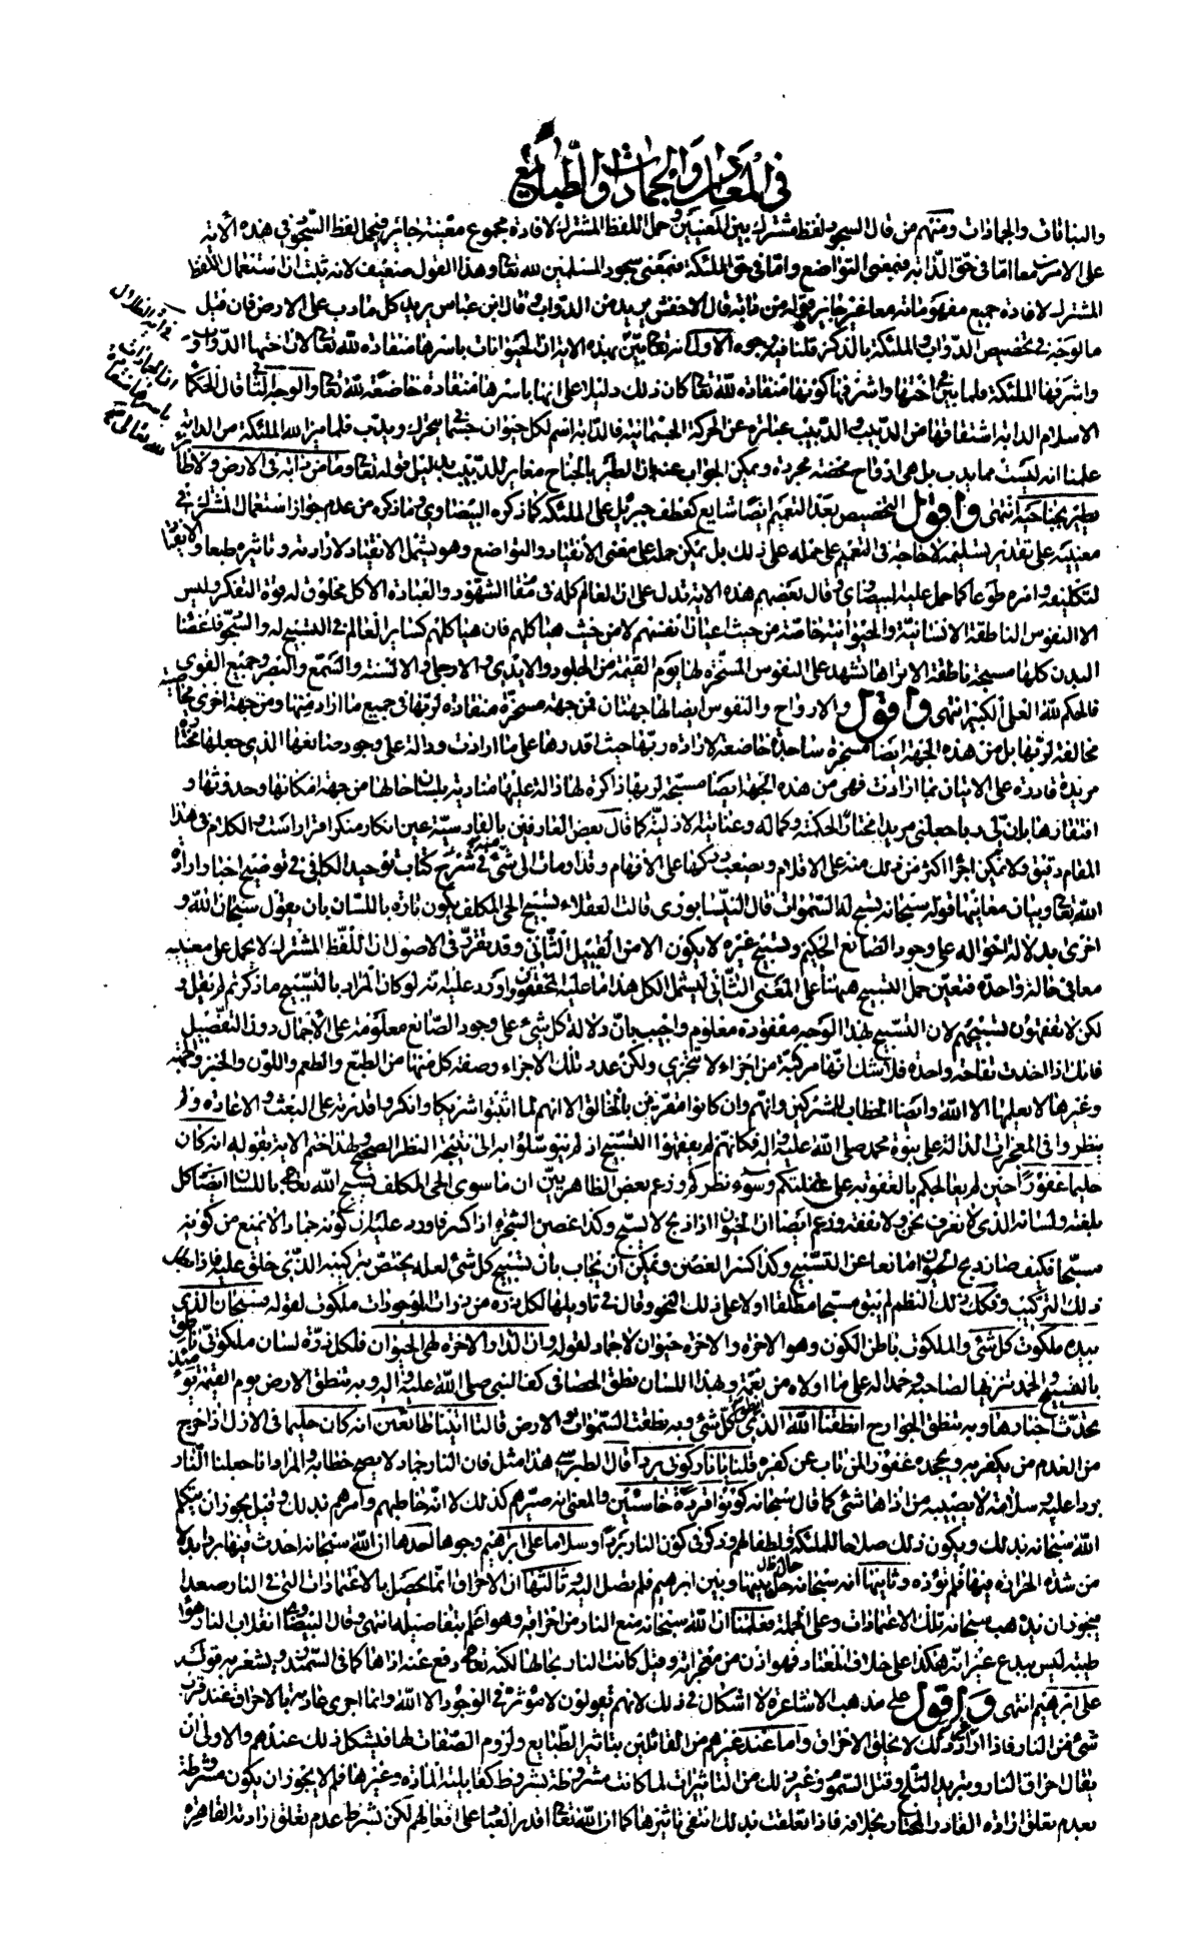 في المعادن والجمادات والطبايع
والنباتات والجمادات ومنهم من قال السجود لفظ مشترك بين المعنيين وحمل اللفظ المشترك لافادة مجموع معنييه جائز فيحمل لفظ السجود في هذه الآية
على الامرين معا اما في حق الدابة فبمعنى التواضع واما في حق الملئكة فبمعنى سجود المسلمين لله تعالى وهذا القول ضعيف لانه ثبت ان استعمال اللفظ
المشترك لافادة جميع مفهوماته معا غير جايز قوله من دابة قال الاخفش يريد من الدواب وقال ابن عباس يريد كل ما دب على الارض فان قيل
ما الوجه في تخصيص الدواب والملئكة بالذكر قلنا فيه وجوه الاول انه تعالى بين بهذه الاية ان الحيوانات باسرها منقادة لله تعالى لان اخسها الدواب و
واشرفها الملئكة فلما بين في اخسها واشرفها كونها منقادة لله تعالى كان ذلك دليلا على انها باسرها منقادة خاضعة لله تعالى والوجه الثاني قال حكماء
الاسلام الدابة اشتقاقها من الدبيب والدبيب عبارة عن الحركة الجسمانية فالدابة اسم لكل حيوان جسماني يتحرك ويدب فلما ميز الله الملئكة من الدابة
علمنا انه ليست مما يدب بل هي ارواح محضة مجردة ويمكن الجواب عنه بان الطير بالجناح مغاير للدبيب بدليل قوله تعالى وما من دابة في الارض ولا طائر
يطير بجناحيه انتهى واقول التخصيص بعد التعميم ايضا شايع كعطف جبرئيل على الملئكة كما ذكره البيضاوي وما ذكره من عدم جواز استعمال المشترك في
معنييه على تقدير تسليمه لا حاجة في التعميم على حمله على ذلك بل يمكن حمله على معنى الانقياد والتواضع وهو يشمل الانقياد لارادته وتاثيره طبعا والانقياد
لتكليفه وامره طوعا كما حمل عليه البيضاوي وقال بعضهم هذه الاية تدل على ان العالم كله في مقام الشهود والعبادة الا كل مخلوق له قوة التفكر وليس
الا النفوس الناطقة الانسانية والحيوانية خاصة من حيث اعيان نفسهم لا من حيث هياكلهم فان هياكلهم كساير العالم في التسبيح له والسجود فاعضاء
البدن كلها مسبحة ناطقة الا تراها تشهد على النفوس المسخرة لها يوم القيمة من الجلود والايدي والارجل والالسنة والسمع والبصر وجميع القوى
فالحكم لله العلي الكبير انتهى واقول والارواح والنفوس ايضا لها جهتان فمن جهة مسخرة منقادة لربها في جميع ما اراد منها ومن جهة اخرى
مخالفة لربها بل من هذه الجهة ايضا مسخرة ساجدة خاضعة لارادة ربها حيث اقدرها على ما ارادت ودالة على وجود صانعها الذي جعلها مختارة
مريدة قادرة على الاتيان بما ارادت فهي من هذه الجهة ايضا مسبحة لربها ذاكرة لها دالة عليها منادية بلسان حالها من جهة امكانها وحدوثها و
افتقارها بان لي ربا جعلني مريدا مختارا لحكمته وكماله وعنايته لازلية كما قال بعض العارفين بالفارسية عين انكار منكر اقرار است والكلام في هذا
المقام دقيق لا يمكن اجراء اكثر من ذلك منه على الاقلام ويصعب دركها على الافهام وقد اومأت الى شئ منه في شرح كتاب توحيد الكافي في توضيح اخبار ارادة
الله تعالى وبيان معانيها قوله سبحانه تسبح له السموات قال النيسابوري قالت العقلاء تسبيح الحي المكلف يكون تارة باللسان بان يقول سبحان الله و
اخرى بدلالة احواله على وجود الصانع الحكيم وتسبيح غيره لا يكون الا من القبيل الثاني وقد تقرر في الاصول ان اللفظ المشترك لا يحمل على معنييه
معا في حالة واحدة فتعين حمل التسبيح ههنا على المعنى الثاني ليشمل الكل هذا ما عليه المحققون واورد عليه انه لو كان المراد بالتسبيح ما ذكرتم لم يقل و
لكن لا تفقهون تسبيحهم لان التسبيح بهذا الوجه مفقود معلوم واجيب بان دلالة كل شئ على وجود الصانع معلومة على الاجمال دون التفصيل
فانك اذا اخذت تفاحة واحدة فلا شك انها مركبة من اجزاء لا تتجزى ولكن عدد تلك الاجزاء وصفة كل منها من الطبع والطعم واللون والحيز والجهة
وغيرها لا يعلمها الا الله وايضا الخطاب للمشركين وانهم وان كانوا مقرين بالخالق الا انهم لما اثبتوا شريكا وانكروا قدرته على البعث والاعادة ولم
ينظروا في المعجزات الدالة على نبوة محمد صلى الله عليه واله فكانهم لم يفقهوا التسبيح اذ لم يتوسلوا به الى نتيجة النظر الصحيح ولهذا ختم الاية بقوله انه كان
حليما غفورا حين لم يعاجلكم بالعقوبة على غفلتكم وسوء نظركم وزعم بعض الظاهريين ان ما سوى الحي المكلف يسبح الله تعالى باللسان ايضا كل
بلغته ولسانه الذي لا نعرف نحن ولا نفقه وزعم ايضا ان الحيوان اذا ذبح لا يسبح وكذا غصن الشجرة اذا كسر فاورد عليه ان كونه جمادا لا يمنع من كونه
مسبحا فكيف صار ذبح الحيوان مانعا عن التسبيح وكذا كسر الغصن ويمكن ان يجاب بان تسبيح كل شئ لعله يختص بتركيبه الذي خلق عليه فاذا بطل
ذلك التركيب وفك ذلك النظم لم يبق مسبحا مطلقا او لا على ذلك النحو وقال في تاويلها لكل ذرة من ذرات الموجودات ملكوت لقوله فسبحان الذي
بيده ملكوت كل شئ والملكوت باطن الكون وهو الاخرة والاخرة حيوان لا جماد لقوله وان الدار الاخرة لهي الحيوان فلكل ذرة لسان ملكوتي ناطق
بالتسبيح والحمد تنزيها لصاحبه وحمدا له على ما اولاه من نعمه وبهذا اللسان نطق الحصا في كف النبي صلى الله عليه واله وبه تنطق الارض يوم القيمة يومئذ
تحدث اخبارها وبه تنطق الجوارح انطقنا الله الذي انطق كل شئ وبه نطقت السموات والارض قالتا اتينا طائعين انه كان حليما في الازل اذ اخرج
من العدم من يكفر به ويجحده غفورا لمن تاب عن كفره قلنا يا نار كوني بردا قال الطبرسي هذا مثل فان النار جماد لا يصح خطابه والمراد انا جعلنا النار
بردا عليه وسلامة لا يصيبه من اذاها شئ كما قال سبحانه كونوا قردة خاسئين والمعنى انه صيرهم كذلك لا انه خاطبهم وامرهم بذلك وقيل يجوز ان يتكلم
الله سبحانه بذلك ويكون ذلك صلاحا للملئكة ولطفا لهم وذكر في كون النار بردا وسلاما على ابرهيم وجوها احدها ان الله سبحانه احدث فيها بردا بدلا
من شدة الحرارة فيها فلم تؤذه وثانيها انه سبحانه حال بينها وبين ابرهيم فلم تصل اليه وثالثها ان الاحراق انما يحصل بالاعتمادات التي في النار صعدا
فيجوز ان يذهب سبحانه تلك الاعتمادات وعلى الجملة فعلمنا ان الله سبحانه منع النار من احراقه وهو اعلم بتفاصيله انتهى وقال البيضاوي انقلاب النار هواء
طيبة ليس ببدع غير انه هكذا على خلاف المعتاد فهو اذن من معجزاته وقيل كانت النار بحالها لكنه تعالى دفع عنه اذاها كما في السمندر ويشعر به قوله
على ابرهيم انتهى واقول على مذهب الاشاعرة لا اشكال في ذلك لانهم يقولون لا مؤثر في الوجود الا الله وانما اجرى عادته بالاحراق عند قرب
شئ من النار فاذا اراد غير ذلك لا يخلق الاحراق واما عند غيرهم من القائلين بتاثير الطبايع ولزوم الصفات لها فيشكل ذلك عندهم والاولى ان
يقال احراق النار وتبريد الثلج وقتل السموم وغير ذلك من التاثيرات لما كانت مشروطة بشروط كقابلية المادة وغيرها فلم لا يجوز ان يكون مشروطة
بعدم تعلق ارادة القادر المختار بخلافه فاذا تعلقت بذلك انتفى تاثيرها كما ان الله تعالى اقدر العباد على افعالهم لكن بشرط عدم تعلق ارادته القاهرة